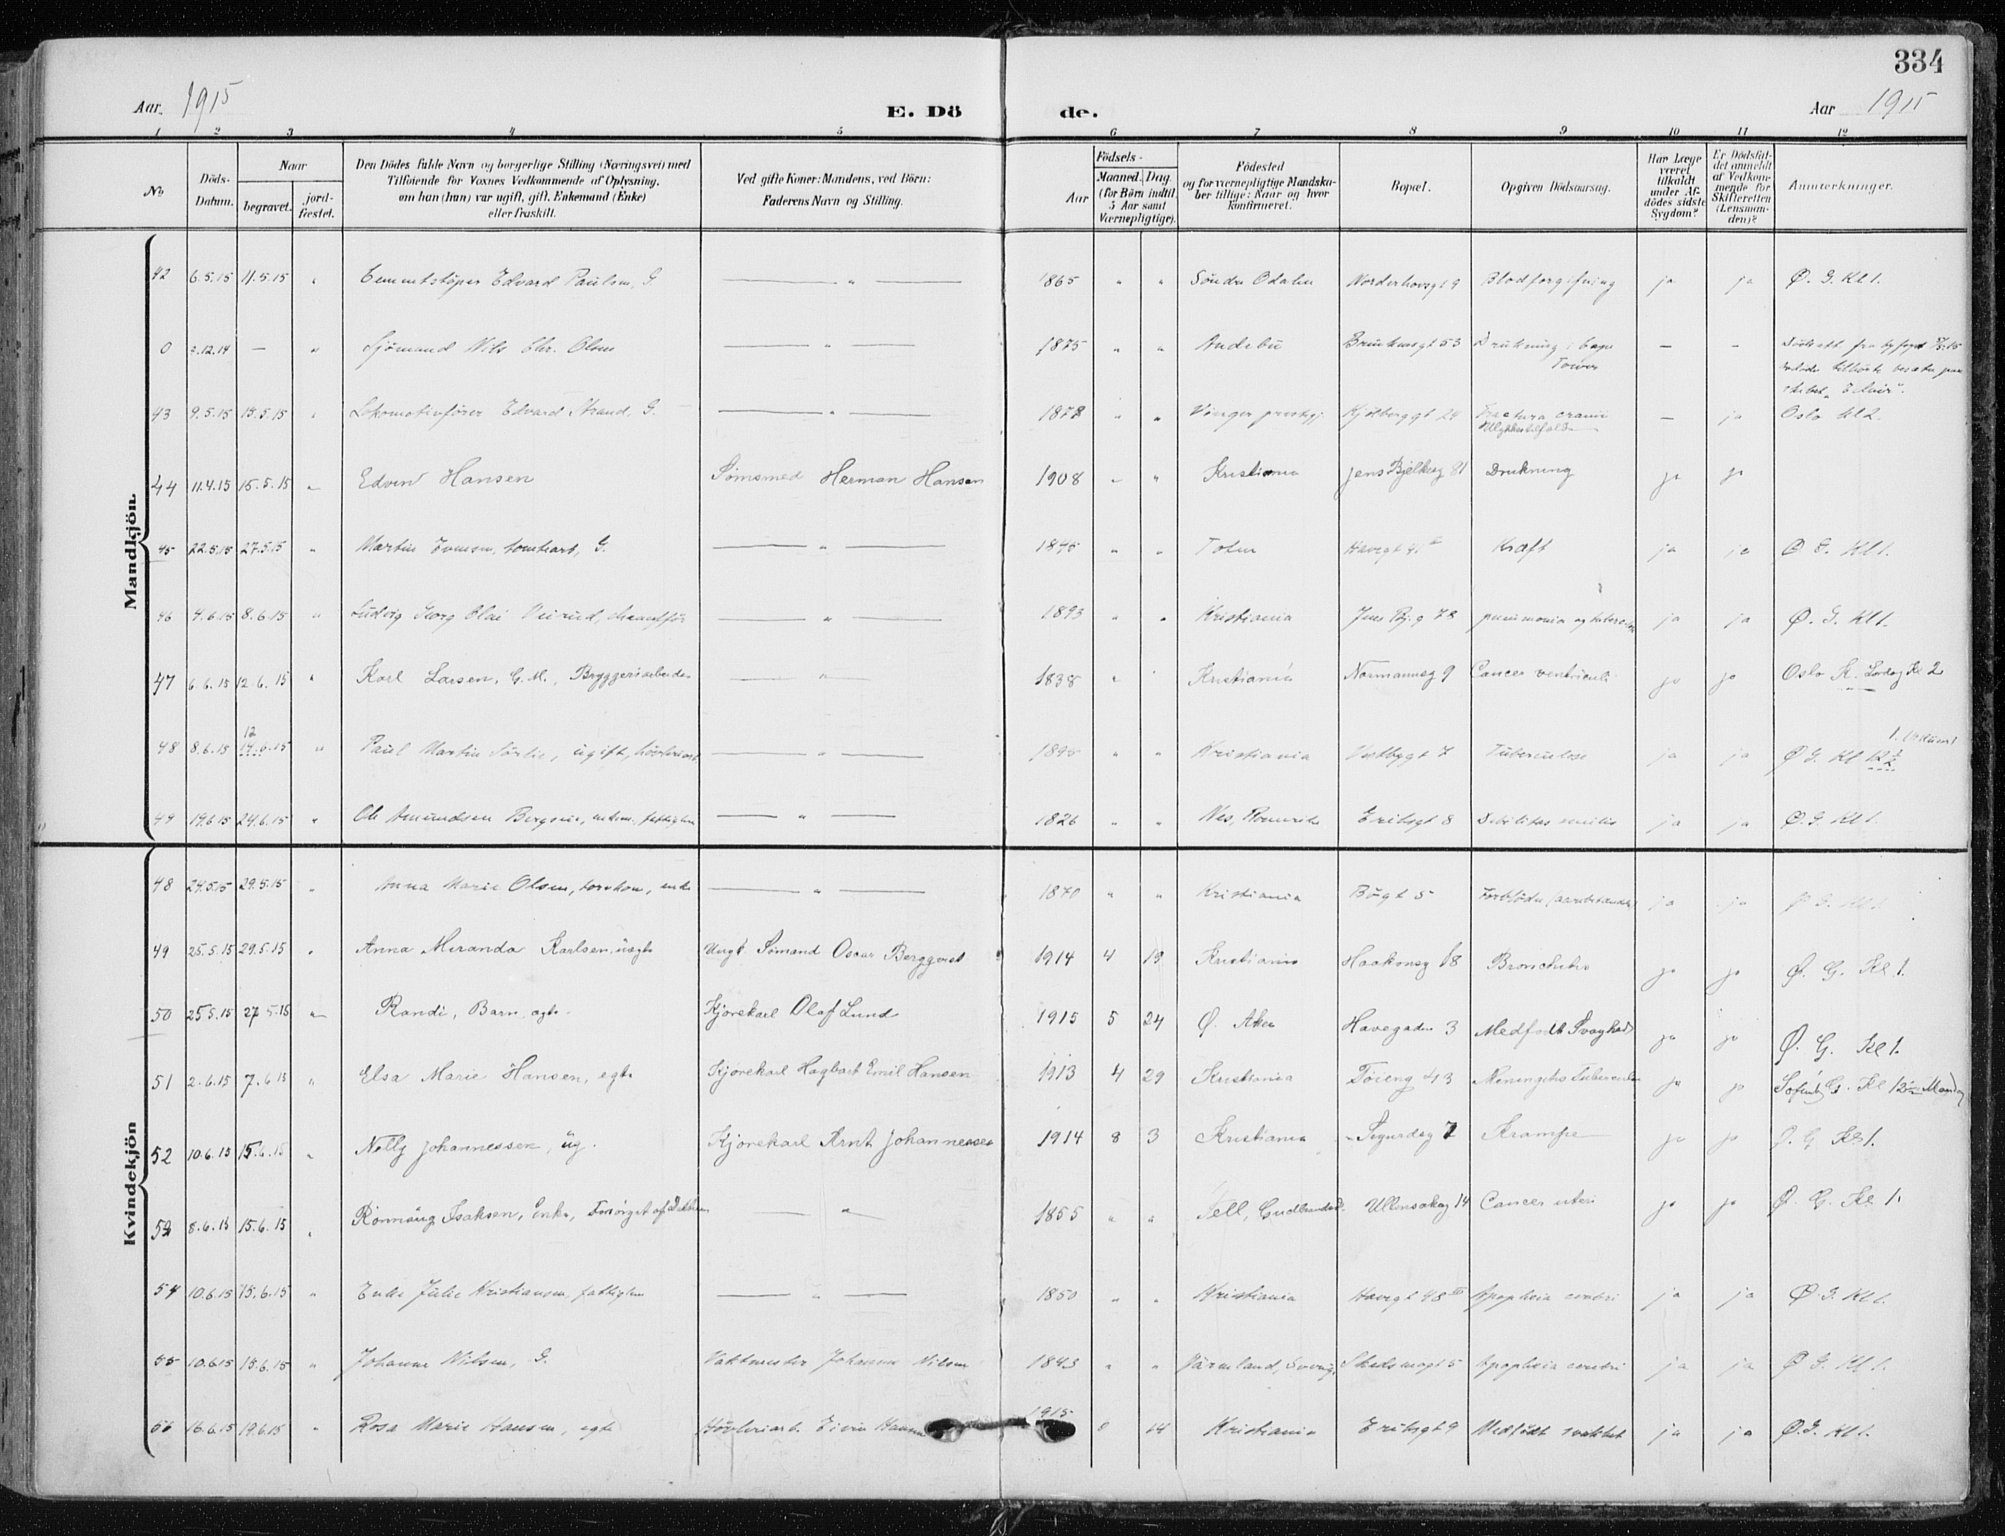 334
Aar 1915
E. Dö
de.
Aar 1915
1 2 3 4 5 6 7 8 9 10 11 12
No
Döds-Datum.
Naar
begravet.
jord-fæstet.
Den Dödes fulde Navn og borgerlige Stilling (Næringsvei) med
Tilföiende for Voxnes Vedkommende af Oplysning,
om han (hun) var ugift, gift, Enkemand (Enke)
eller fraskilt.
Ved gifte Koner: Mandens, ved Börn:
Faderens Navn og Stilling.
Födsels-
Aar
Maaned. Dag.
(for Börn indtil
5 Aar samt
Værnepligtige).
Födested
og for værnepligtige Mandska-
ber tillige: Naar og hvor
konfirmeret.
Bopæl.
Opgiven Dödsaarsag.
Har Læge
været
tilkaldt
under Af-
dödes sidste
Sygdom?
Er Dödsfal-
det anmeldt
af Vedkom-
mende for
Skifteretten
(Lensman-
den)?
Anmærkninger.
Mandkjön.
42 6.5.15 11.5.15 " Edvard Paulsen, G. — " — 1865 " " Söndre Odalen Norderhovsgt 9 Blodforgiftning ja ja Ø. G. Kl 1.
0 2.12.14 — " Sjömand Nils Chr. Olsen — " — 1875 " " Andebu 53 Drukning — —
43 9.5.15 15.5.15 " Lokomotivfører Edvard Strand, G. — " — 1878 " " Vinger Kjölberggt 24 Fractura cranii — ja Oslo Kl 2.
Ulykkestilfælde
44 11.4.15 15.5.15 " Edvin Hansen Herman Hansen 1908 " " Kristiania Jens Bjelkesg 81 Drukning ja ja
45 22.5.15 27.5.15 " Martin G. — " — " " Toten Kræft ja ja Ø G. Kl 1.
46 4.6.15 8.6.15 " Ludvig Georg Olai — " — 1893 " " Kristiania Jens Bj. g 78 pneumonia og ja ja Ø. G. Kl 1.
47 6 6.15 12 6.15 " Karl Larsen, G. M., Bryggeriarbeider — " — 1838 " " Kristiania Normannsg 9 Cancer ventriculi ja ja Oslo K. Lørdag Kl 2
48 8.6.15 12 14.6.15 " Paul Martin ugift, — " — " " Kristiania Vestbygt 7 Tuberculose ja ja Ø G. Kl 12½
49 19.6.15 24.6.15 " Ole Amundsen — " — 1826 " " Nes, Romerike Eriksgt 8 Debilitas senilis ja ja Ø. G. Kl 1.
Kvindekjön
48 24.5.15 29.5.15 " Anna Marie Olsen, enke — " — 1870 " " Kristiania Bøgt 5 ja ja Ø G. Kl 1.
49 25.5.15 29.5.15 " Anna Miranda Karlsen, uægte Ungk. Sømand Oscar Berggvist 1914 4 19 Kristiania Haakonsg 18 Bronchitis ja ja Ø. G. Kl 1.
50 25.5.15 27 5.15 " Randi, Barn, ægte. Kjørekarl Olaf Lund 1915 5 24 Ø. Aker Havegaden 3 Medfødt Svaghed ja ja Ø. G. Kl 1.
51 2.6.15 7.6.15 " Elsa Marie Hansen, egte Kjørekarl Hagbart Emil Hansen 1913 4 29 Kristiania Tøieng 43 Meningitis Tuberculos ja ja G. Kl 12 Mandag
52 10.6.15 15.6.15 " Nelly Johannessen, ug. Kjørekarl Arnt Johannessen 1914 8 3 Kristiania Sigurdsg 7 Krampe ja ja Ø. G Kl 1.
53 8.6.15 15.6.15 " Isaksen, Enke, Forsørget af — " 1855 " " Gudbrandsd. Ullensakerg 14 Cancer uteri ja ja Ø. G. Kl 1.
54 10.6.15 15.6.15 " Enke Julie Kristiansen, fattiglem — " — 1850 " " Kristiania Havegt 48 III Apoplexia cerebri ja ja Ø. G. Kl 1.
55 10.6.15 15.6.15 " Johanne Nilsen, G. Vaktmester Johannes Nilsen 1843 " " Värmland, Sverige Skedsmogt 5 Apoplexia cerebri ja ja Ø G. Kl 1.
56 16.6.15 19.6.15 " Rosa Marie Hansen, egte Høvleriarb. 1915 14 Kristiania Eriksgt 9 Medfødt svakhet ja ja Ø. G. Kl 1.